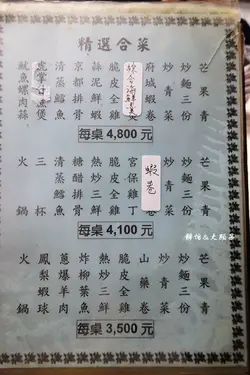 精選合菜
芒果青
炒麵三份
炒青菜
府城蝦卷
脆皮三雞
蒜泥鮮蝦
京都排骨
清蒸鱈魚
魷魚螺肉蒜
每桌 4,800 元
芒果青
炒麵三份
炒青菜
蝦卷
宮保雞丁
脆皮全雞
熱炒三鮮
糖醋排骨
清蒸鱈魚
三杯
火鍋
每桌 4,100 元
芒果青
炒麵三份
炒青菜
山藥卷
脆皮全雞
熱炒三鮮
炸柳葉魚
蔥爆羊肉
鳳梨蝦球
火鍋
每桌 3,500 元